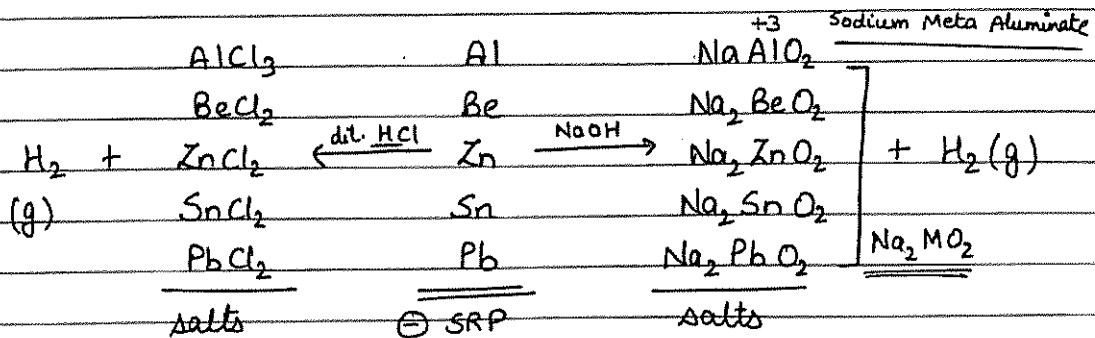 +3 Sodium Meta Aluminate
AlCl₃ Al NaAlO₂
BeCl₂ Be Na₂BeO₂
H₂ + ZnCl₂ ←dil. HCl Zn NaOH→ Na₂ZnO₂ + H₂(g)
(g) SnCl₂ Sn Na₂SnO₂
PbCl₂ Pb Na₂PbO₂ Na₂MO₂
salts ⊖ SRP salts